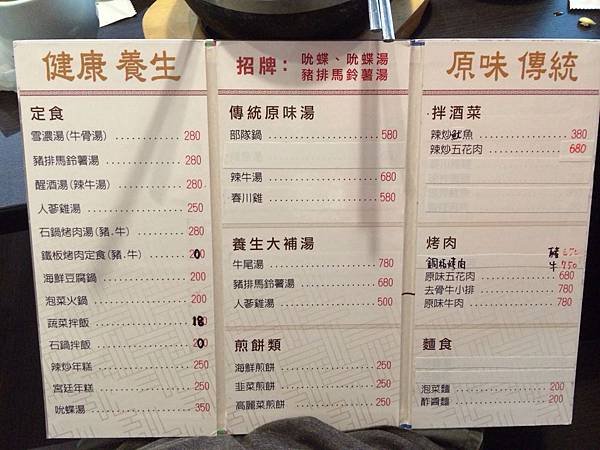 健康 養生
定食
雪濃湯(牛骨湯) 280
豬排馬鈴薯湯 280
醒酒湯(辣牛湯) 280
人蔘雞湯 250
石鍋烤肉湯(豬.牛) 280
鐵板烤肉定食(豬.牛)
海鮮豆腐鍋 200
泡菜火鍋 200
蔬菜拌飯 180
石鍋拌飯
辣炒年糕 250
宮廷年糕 250
吮蝶湯 350
招牌: 吮蝶、吮蝶湯
豬排馬鈴薯湯
傳統原味湯
部隊鍋 580
辣牛湯 680
春川雞 580
養生大補湯
牛尾湯 780
豬排馬鈴薯湯 680
人蔘雞湯 500
煎餅類
海鮮煎餅 250
韭菜煎餅 250
高麗菜煎餅 250
原味 傳統
拌酒菜
辣炒魷魚 380
辣炒五花肉 680
烤肉
豬
銅板烤肉 牛 750
原味五花肉 680
去骨牛小排 780
原味牛肉 780
麵食
泡菜麵 200
酢醬麵 200